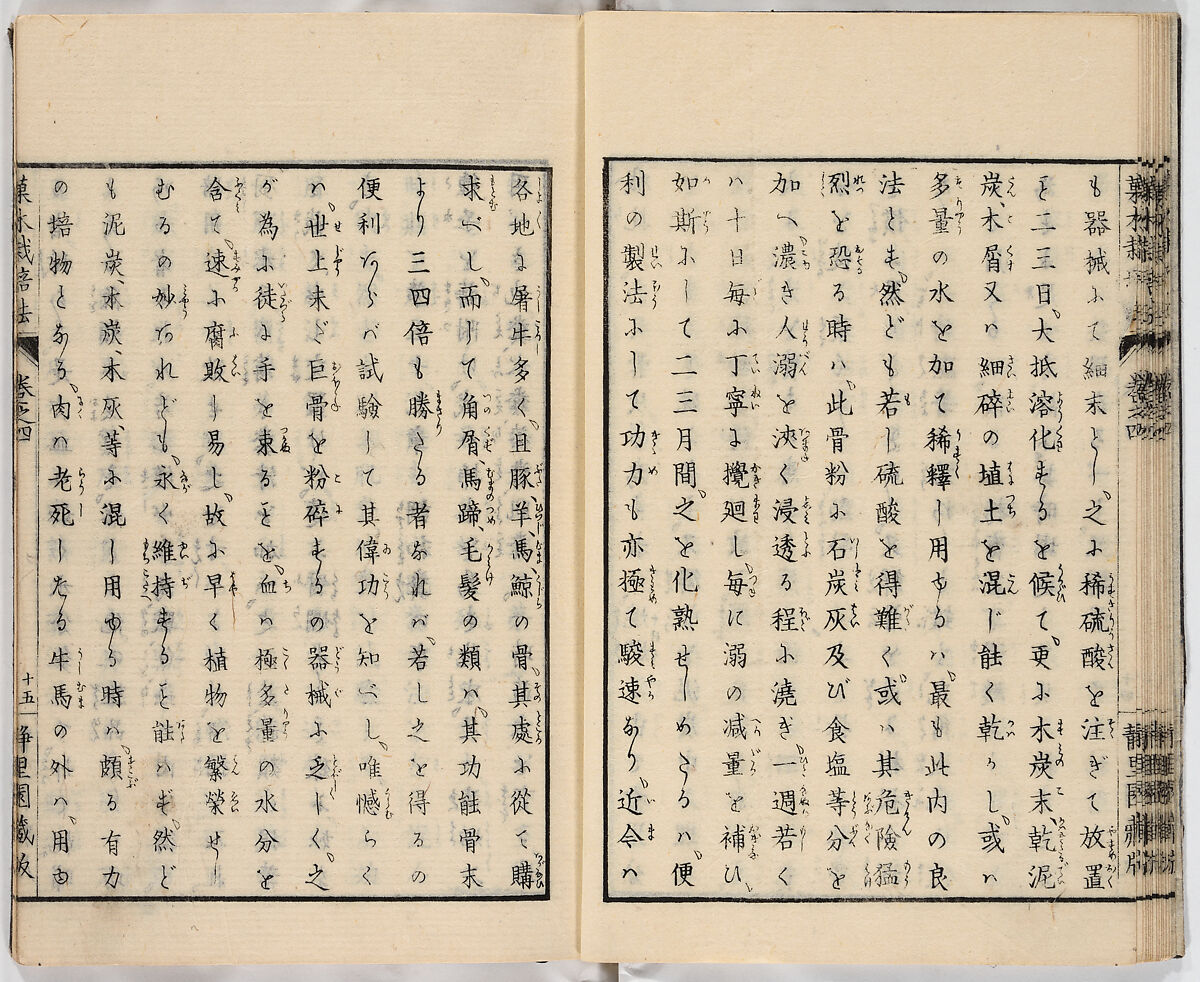 も器械にて細末とし、之に稀硫酸を注ぎて放置
を二三日、大抵溶化するを候て、更に木炭末、乾泥
炭、木屑又ハ細碎の埴土を混じ能く乾かし、或ハ
多量の水を加て稀釋し用ゆるハ、最も此内の良
法とも、然ども若し硫酸を得難く、或ハ其危險猛
烈を恐る時ハ、此骨粉に石炭灰及び食塩等分を
加へ、濃き人溺を浹く浸透る程に澆ぎ、一週若く
ハ十日毎に丁寧に攪廻し、毎に溺の减量を補ひ、
如斯にして二三月間、之を化熟せしめたるハ、便
利の製法にして功力も亦極て駿速なり、近今ハ
各地に屠牛多く、且豚、羊、馬鯨の骨、其處に從て購
求べし、而して角屑、馬蹄、毛髪の類ハ、其功能骨末
より三四倍も勝さる者なれバ、若し之を得るの
便利あらバ試驗して其偉功を知べし、唯憾らく
ハ、世上未だ巨骨を粉碎するの器械に乏しく、之
が為に徒に手を束るを、血ハ極多量の水分を
含て、速に腐敗し易し、故に早く植物を繁榮せし
むるの妙あれども、永く維持するを能ハず、然ど
も泥炭、木炭、木灰、等に混し用ゆる時ハ、頗る有力
の培物となる、肉ハ老死したる牛馬の外ハ、用ゆ
菓木栽培法
卷之四
十五
靜里園藏版